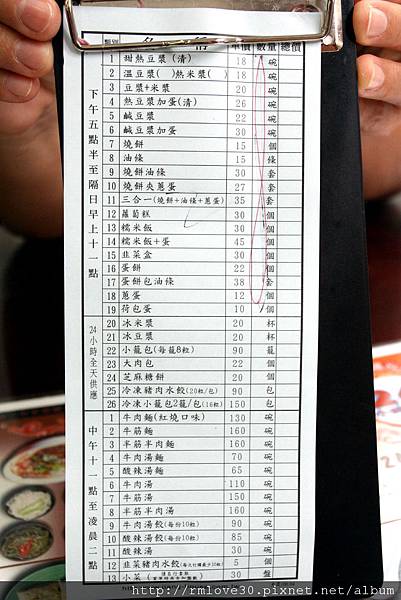 類別 名稱 單價 數量 總價
下午五點半至隔日早上十一點
1 甜熱豆漿 (清) 18 碗
2 溫豆漿( )熱米漿( ) 18 碗
3 豆漿+米漿 20 碗
4 熱豆漿加蛋(清) 26 碗
5 鹹豆漿 22 碗
6 鹹豆漿加蛋 30 碗
7 燒餅 15 個
8 油條 15 條
9 燒餅油條 30 套
10 燒餅夾蔥蛋 27 套
11 三合一(燒餅+油條+蔥蛋) 35 套
12 蘿蔔糕 30 個
13 糯米飯 30 個
14 糯米飯+蛋 45 個
15 韭菜盒 30 個
16 蛋餅 22 個
17 蛋餅包油條 38 套
18 蔥蛋 12 個
19 荷包蛋 10 個
24小時全天供應
20 冰米漿 20 杯
21 冰豆漿 20 杯
22 小籠包(每籠8粒) 90 籠
23 大肉包 22 個
24 芝麻糖餅 20 個
25 冷凍豬肉水餃(20粒/包) 90 包
26 冷凍小籠包2籠/包(16粒) 150 包
中午十一點至凌晨二點
1 牛肉麵(紅燒口味) 130 碗
2 牛筋麵 160 碗
3 半筋半肉麵 160 碗
4 牛肉湯麵 70 碗
5 酸辣湯麵 65 碗
6 牛肉湯 110 碗
7 牛筋湯 150 碗
8 半筋半肉湯 160 碗
9 牛肉湯餃(每份10粒) 90 碗
10 酸辣湯餃(每份10粒) 85 碗
11 酸辣湯 30 碗
12 韭菜豬肉水餃 5 個
13 小菜 30 盤
http://rmlove30.pixnet.net/album